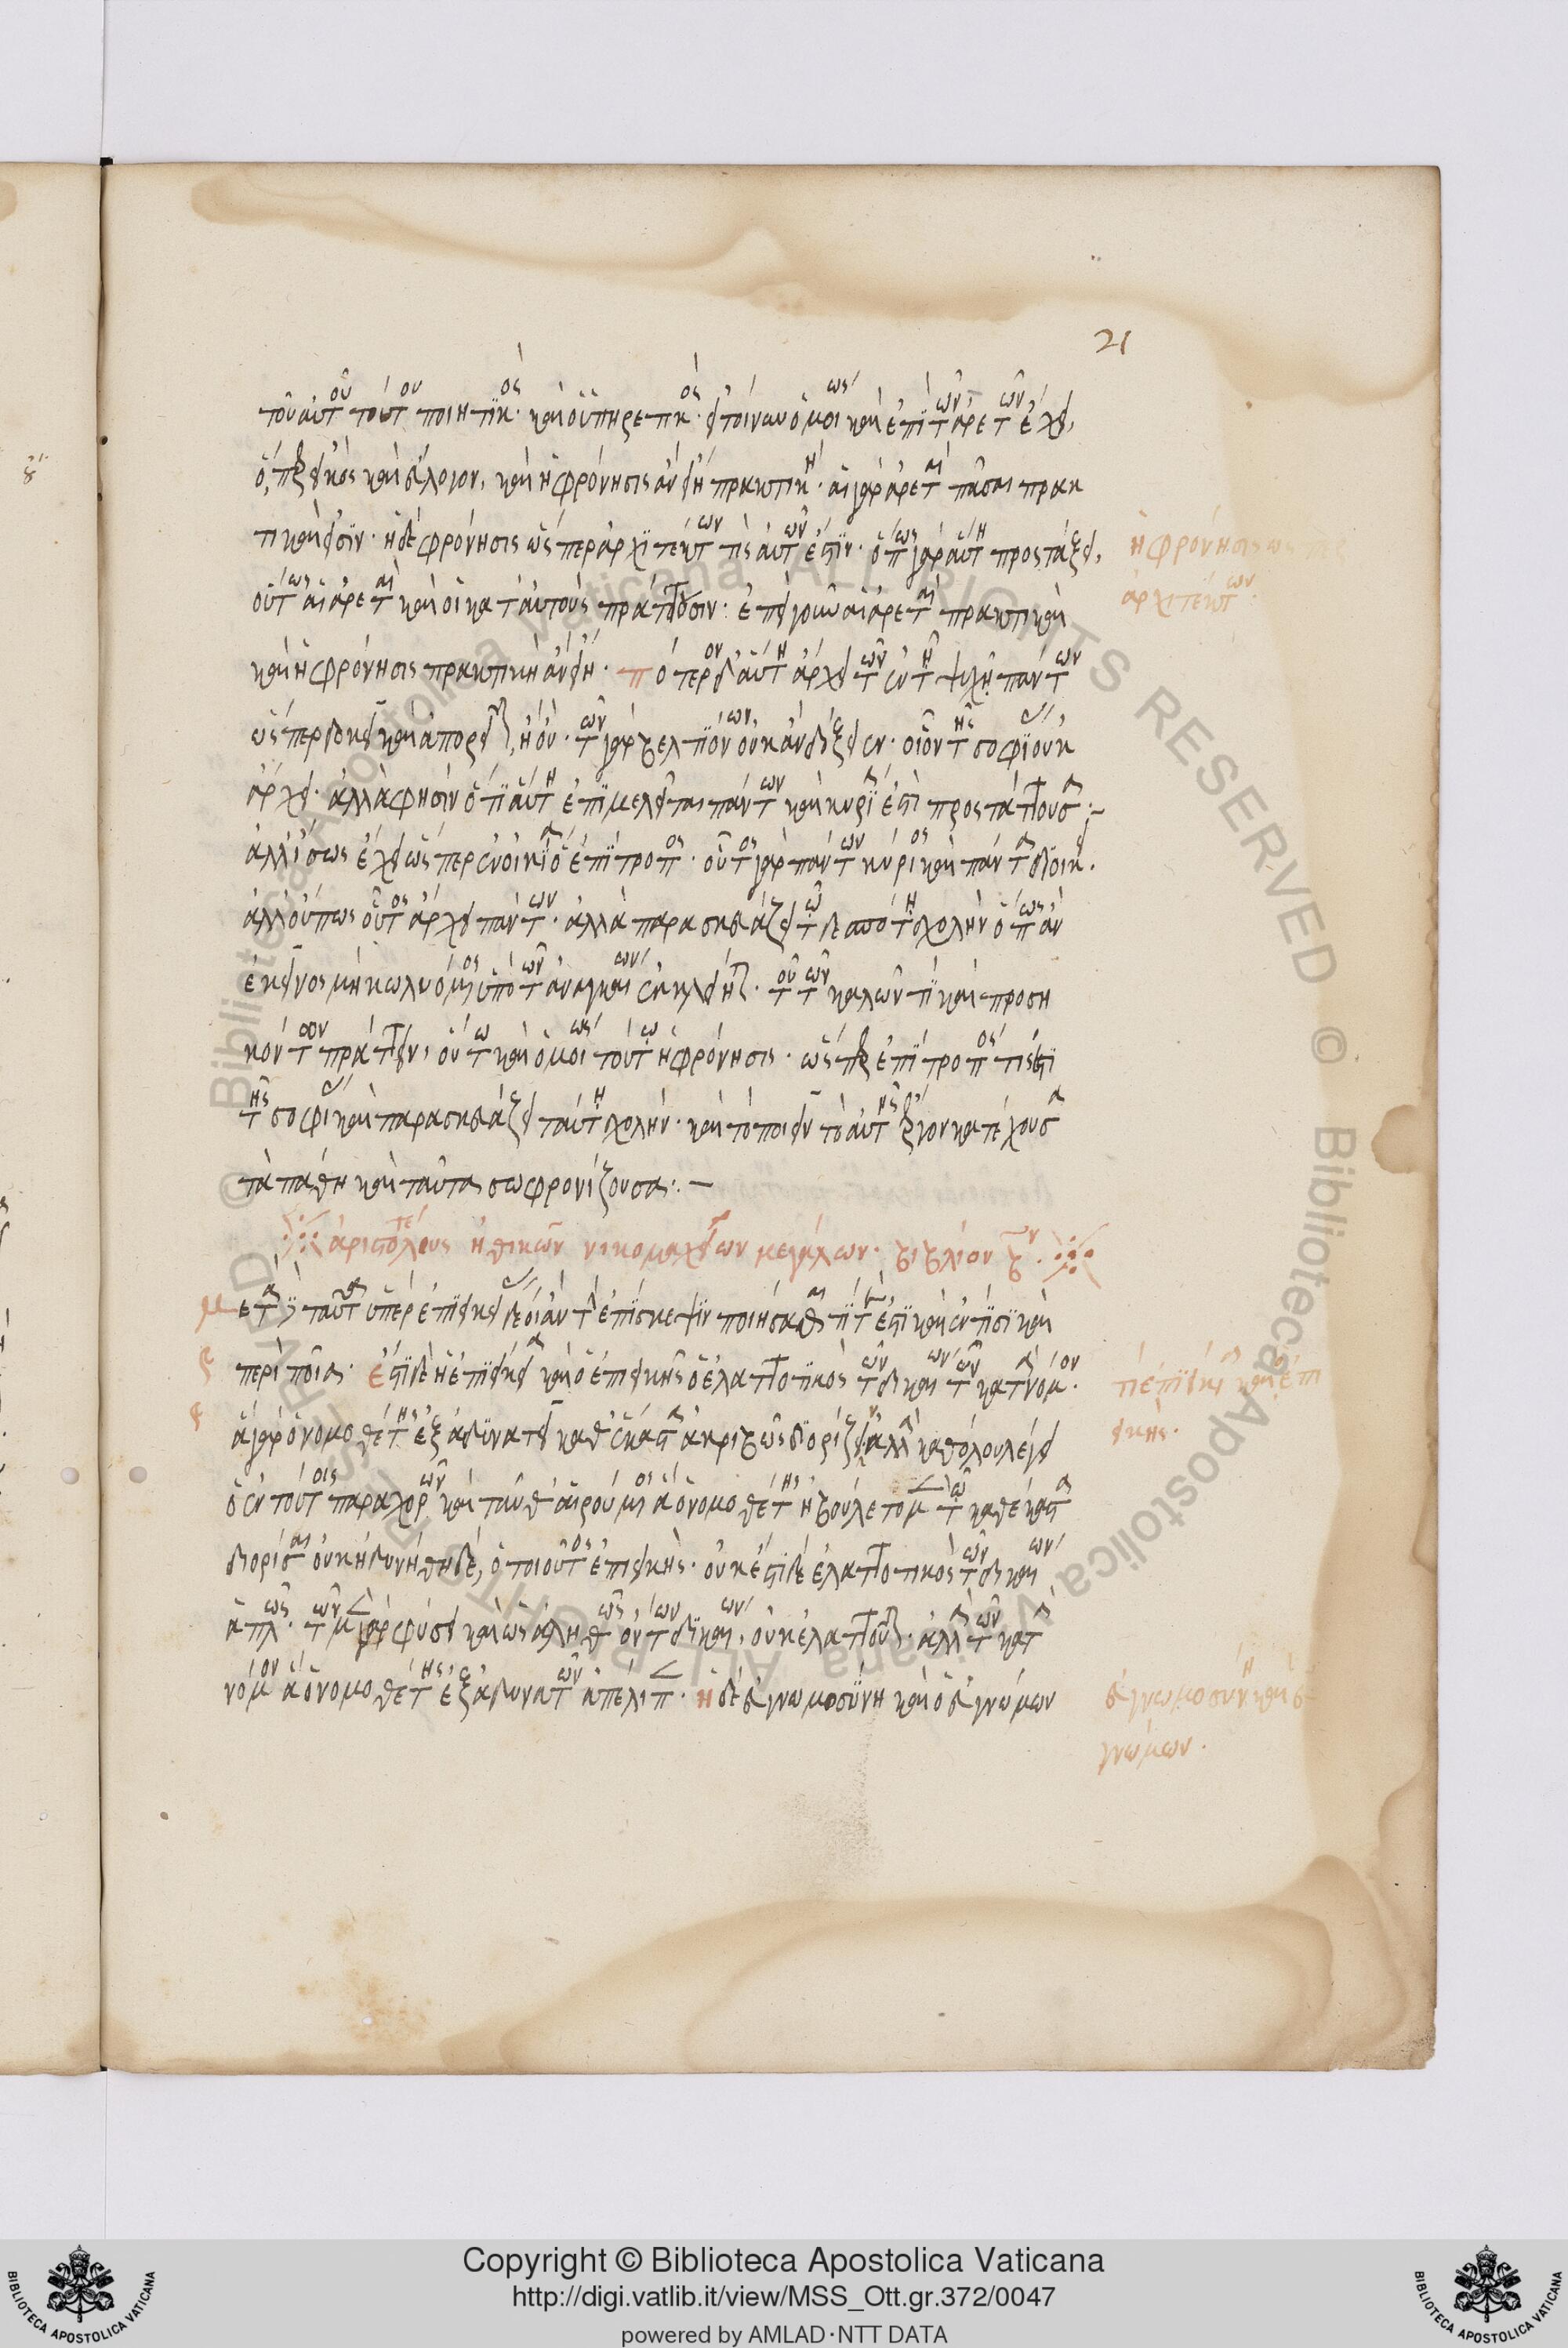 21
τοῦ αὐτοῦ τούτου ποιητικός· καὶ ὁ ὑπηρετικός· εἰ τοίνυν ὁμοίως καὶ ἐπὶ τῶν ἀρετῶν ἔχει,
ὅπερ εἰκὸς καὶ εὔλογον, καὶ ἡ φρόνησις ἂν εἴη πρακτική· αἱ γὰρ ἀρεταὶ πᾶσαι πρακ
τικαί εἰσιν· ἡ δὲ φρόνησις ὥσπερ ἀρχιτέκτων τις αὐτῶν ἐστίν· ὅπως γὰρ αὕτη προστάξει,
οὕτως αἱ ἀρεταὶ καὶ οἱ κατ' αὐτοὺς πράττουσιν· ἐπεὶ γοῦν αἱ ἀρεταὶ πρακτικαὶ
καὶ ἡ φρόνησις πρακτικὴ ἂν εἴη· πότερον δ' αὕτη ἄρχει τῶν ἐν τῇ ψυχῇ πάντων
ὥσπερ δοκεῖ καὶ ἀπορεῖται, ἢ οὔ· τῶν γὰρ βελτιόνων οὐκ ἂν δόξειεν· οἷον τῆς σοφίας οὐκ
ἄρχει· ἀλλὰ φησὶν ὅτι αὕτη ἐπιμελεῖται πάντων καὶ κυρία ἐστὶ προστάττουσα:-
ἀλλ' ἴσως ἔχει ὥσπερ ἐν οἰκίᾳ ὁ ἐπίτροπος· οὗτος γὰρ πάντων κύριος καὶ πάντα διοικεῖ.
ἀλλ' οὔπως οὗτος ἄρχει πάντων· ἀλλὰ παρασκευάζει τῷ δεσπότῃ σχολὴν ὅπως ἂν
ἐκεῖνος μὴ κωλυόμενος ὑπὸ τῶν ἀναγκαίων ἐκκλείηται τοῦ τῶν καλῶν τι καὶ προση
κόντων πράττειν, οὕτω καὶ ὁμοίως τούτῳ ἡ φρόνησις· ὥσπερ ἐπίτροπός τίς ἐστι
τῆς σοφίας καὶ παρασκευάζει ταύτῃ σχολήν· καὶ τὸ ποιεῖν τὸ αὑτῆς ἔργον κατέχουσα
τὰ πάθη καὶ ταῦτα σωφρονίζουσα:-
ἀριστοτέλους ἠθικῶν νικομαχείων μεγάλων· βιβλίον βον.
Μετὰ δὲ ταῦτα ὑπὲρ ἐπιεικείας δέοι ἂν τὴν ἐπίσκεψιν ποιήσασθαι τί τέ ἐστι καὶ ἐν τίσι καὶ
περὶ ποῖα. ἔστι δὲ ἡ ἐπιείκεια καὶ ὁ ἐπιεικὴς ὁ ἐλαττωτικὸς τῶν δικαίων τῶν κατὰ νόμον.
ἃ γὰρ ὁ νομοθέτης ἐξαδυνατεῖ καθ' ἕκαστα ἀκριβῶς διορίζειν ἀλλὰ καθόλου λέγει
ὁ ἐν τούτοις παραχωρῶν καὶ ταῦθ' αἱρούμενος ἃ ὁ νομοθέτης ἠβούλετο μὲν τῷ καθ' ἕκαστα
διορίσαι οὐκ ἠδυνήθη δέ, ὁ τοιοῦτος ἐπιεικής· οὐκ ἔστι δὲ ἐλαττωτικὸς τῶν δικαίων
ἁπλῶς· τῶν μὲν γὰρ φύσει καὶ ὡς ἀληθῶς ὄντων δικαίων, οὐκ ἐλαττοῦται· ἀλλὰ τῶν κατὰ
νόμον ἃ ὁ νομοθέτης ἐξαδυνατῶν ἀπέλιπεν· ἡ δὲ εὐγνωμοσύνη καὶ ὁ εὐγνώμων
ἡ φρόνησις ὥσπερ
ἀρχιτέκτων·
τί ἐπιείκεια καὶ ἐπι
εικής·
εὐγνωμοσύνη καὶ εὐ
γνώμων·
Copyright © Biblioteca Apostolica Vaticana
http://digi.vatlib.it/view/MSS_Ott.gr.372/0047
powered by AMLAD·NTT DATA